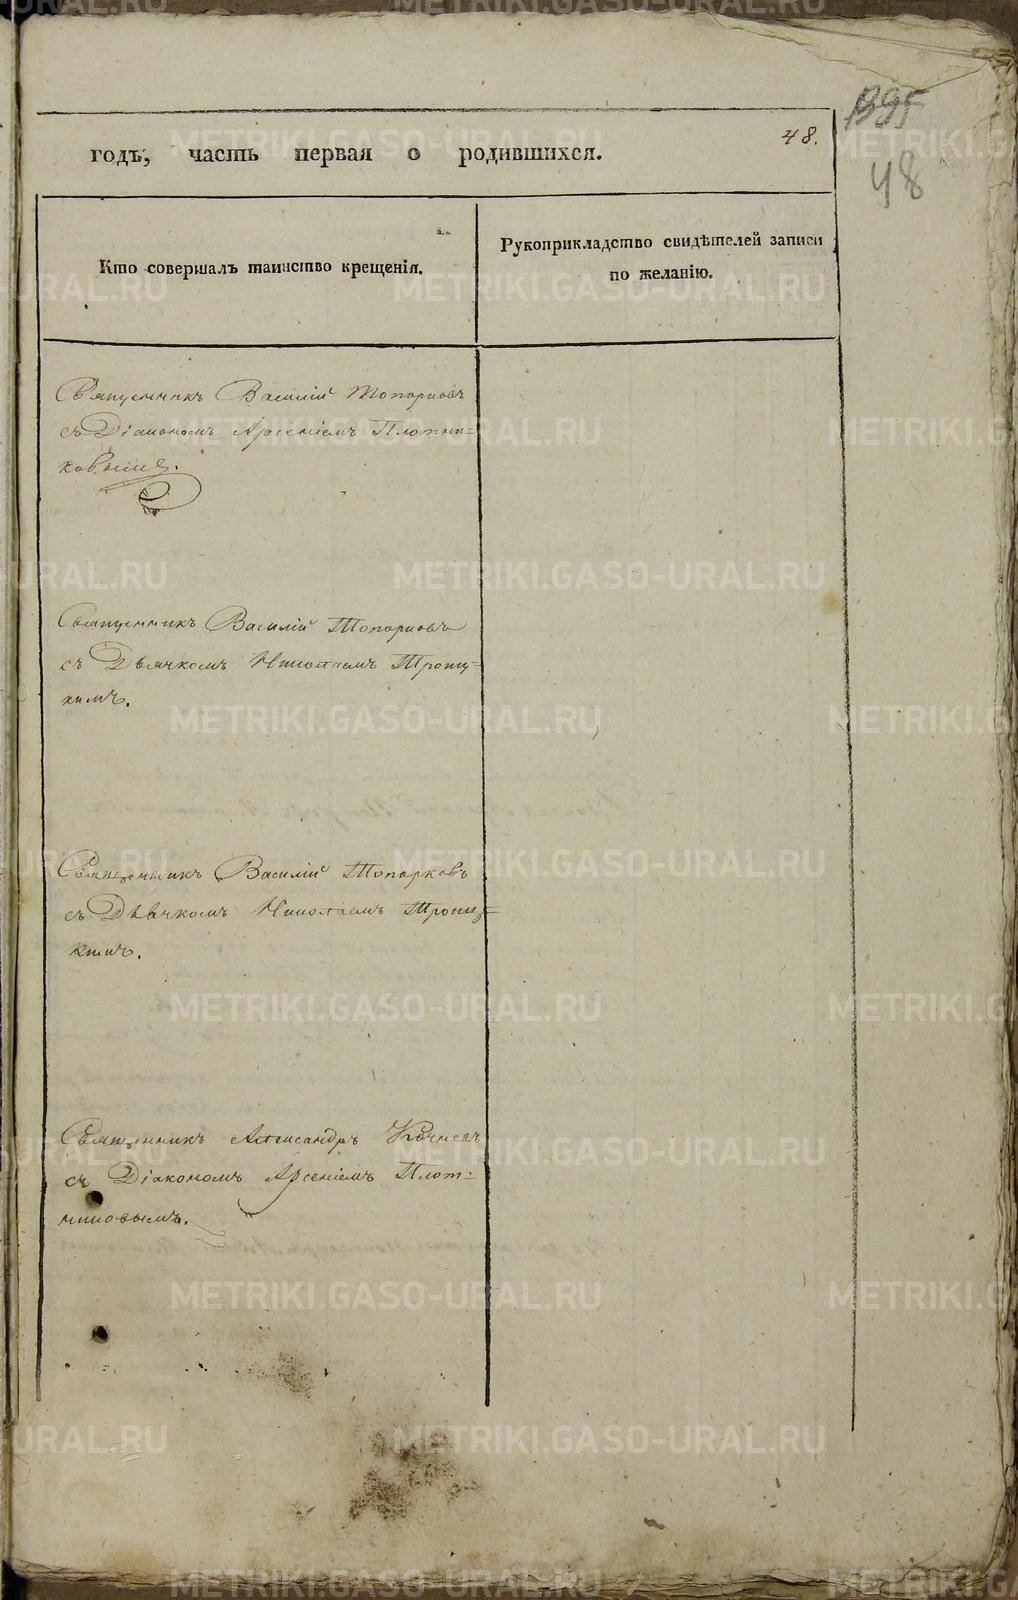 395
48.
48
годъ, часть первая о родившихся.
Кто совершалъ таинство крещенія.
Рукоприкладство свидѣтелей записи
по желанію.
Священникъ Василій Топорковъ
съ Діакономъ Арсеніемъ Плотни=
ковымъ.
Священникъ Василій Топорковъ
съ Дьячкомъ Николаемъ Троиц=
кимъ.
Священникъ Василій Топорковъ
съ Дьячкомъ Николаемъ Троиц=
кимъ.
Священникъ Александръ Кочневъ
съ Діакономъ Арсеніемъ Плот=
никовымъ.
METRIKI.GASO-URAL.RU